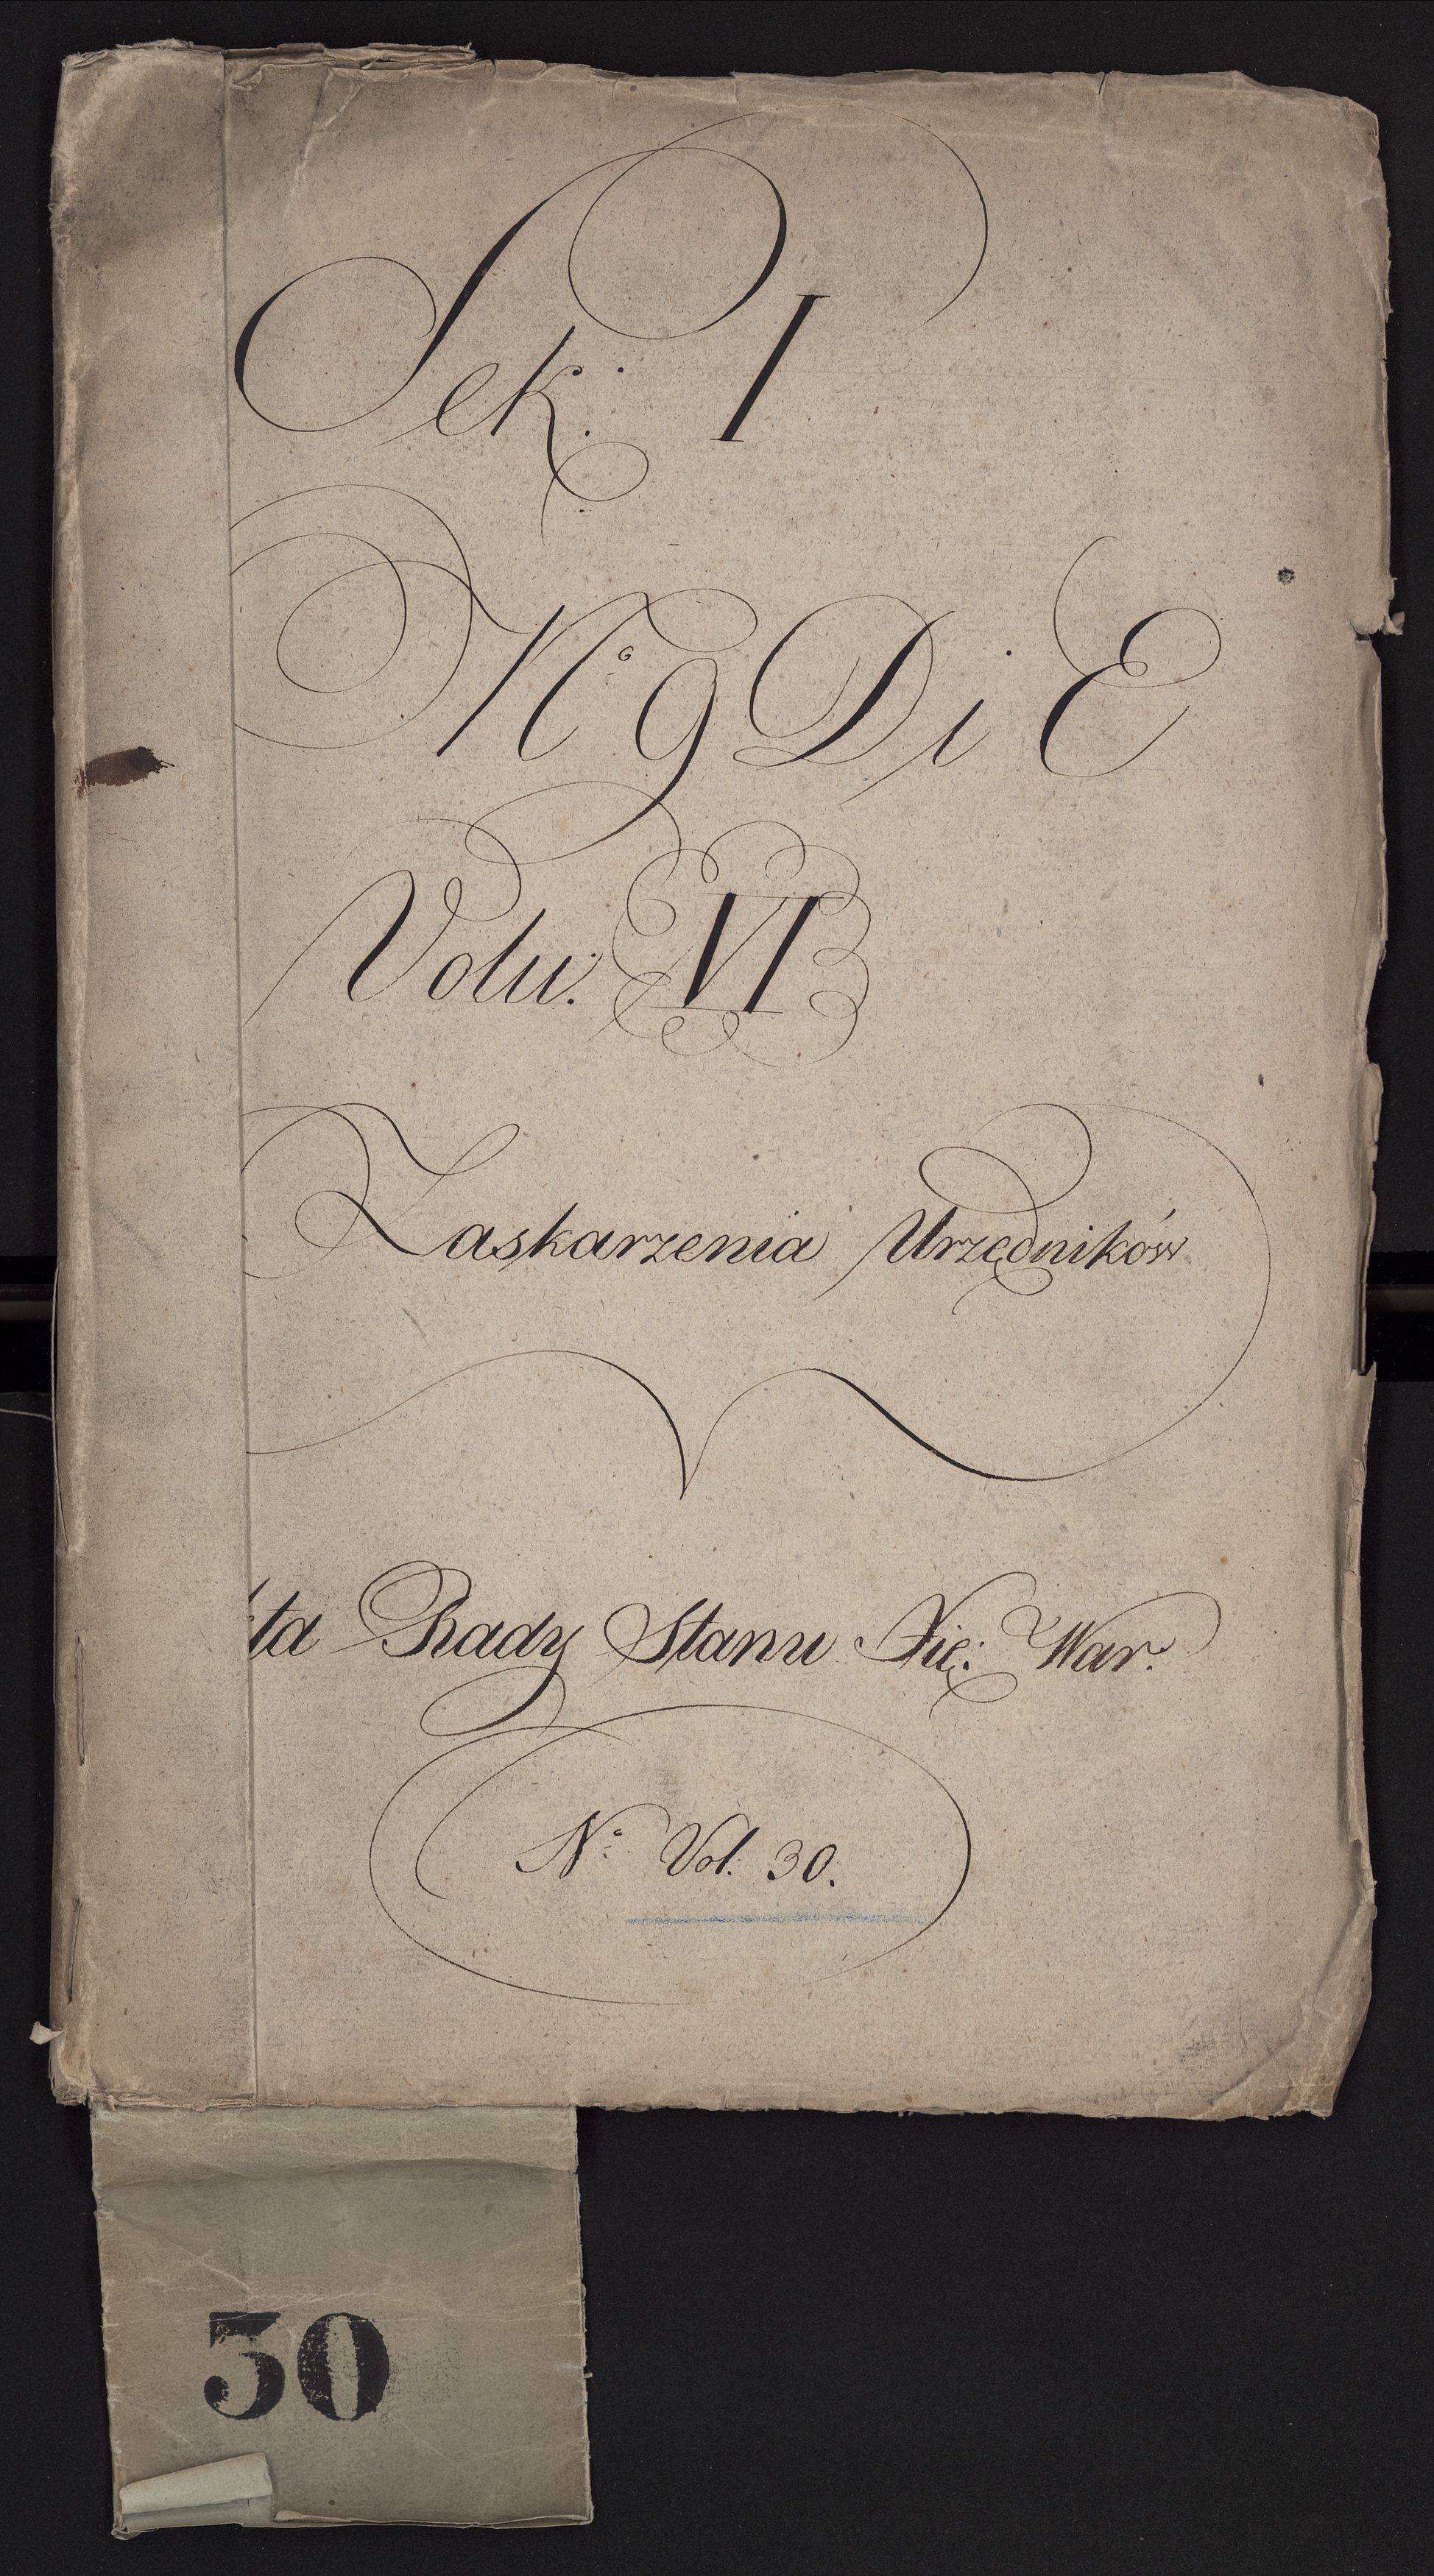 Sek: I
No 9 D i E
Volu: VI
Zaskarzenia Urzędników
kta Rady Stanu Xię: War:
No Vol. 30.
30